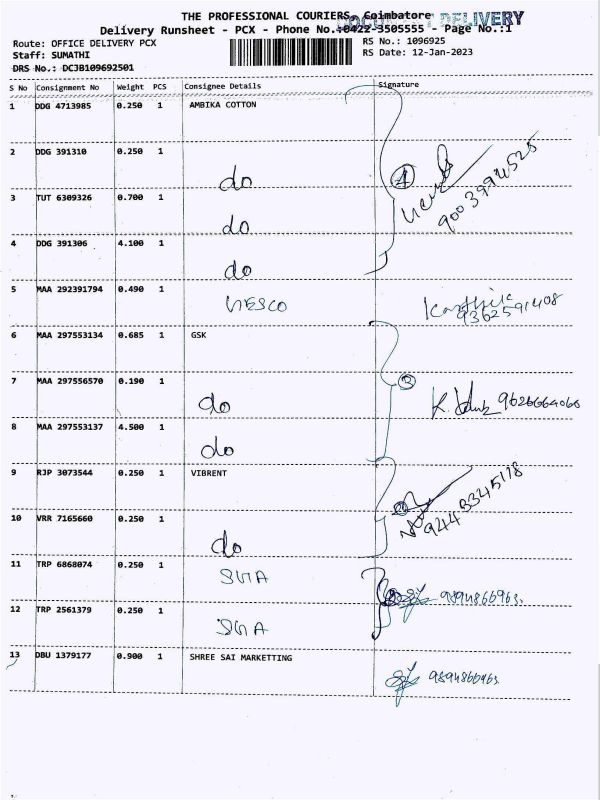 THE PROFESSIONAL COURIERS, Coimbatore
DOCUMENT DELIVERY
Delivery Runsheet - PCX - Phone No.:0422-3505555 - Page No.:1
Route: OFFICE DELIVERY PCX RS No.: 1096925
Staff: SUMATHI RS Date: 12-Jan-2023
DRS No.: DCJB109692501
S No Consignment No Weight PCS Consignee Details Signature
1 DDG 4713985 0.250 1 AMBIKA COTTON
2 DDG 391310 0.250 1 do 4 9003994525
3 TUT 6309326 0.700 1 do
4 DDG 391306 4.100 1 do
5 MAA 292391794 0.490 1 UESCO Karthik 9362591408
6 MAA 297553134 0.685 1 GSK
7 MAA 297556570 0.190 1 do 3 9626664066
8 MAA 297553137 4.500 1 do
9 RJP 3073544 0.250 1 VIBRENT 2 9443345178
10 VRR 7165660 0.250 1 do
11 TRP 6868074 0.250 1 2 9894866963
12 TRP 2561379 0.250 1
13 DBU 1379177 0.900 1 SHREE SAI MARKETTING 9894866963